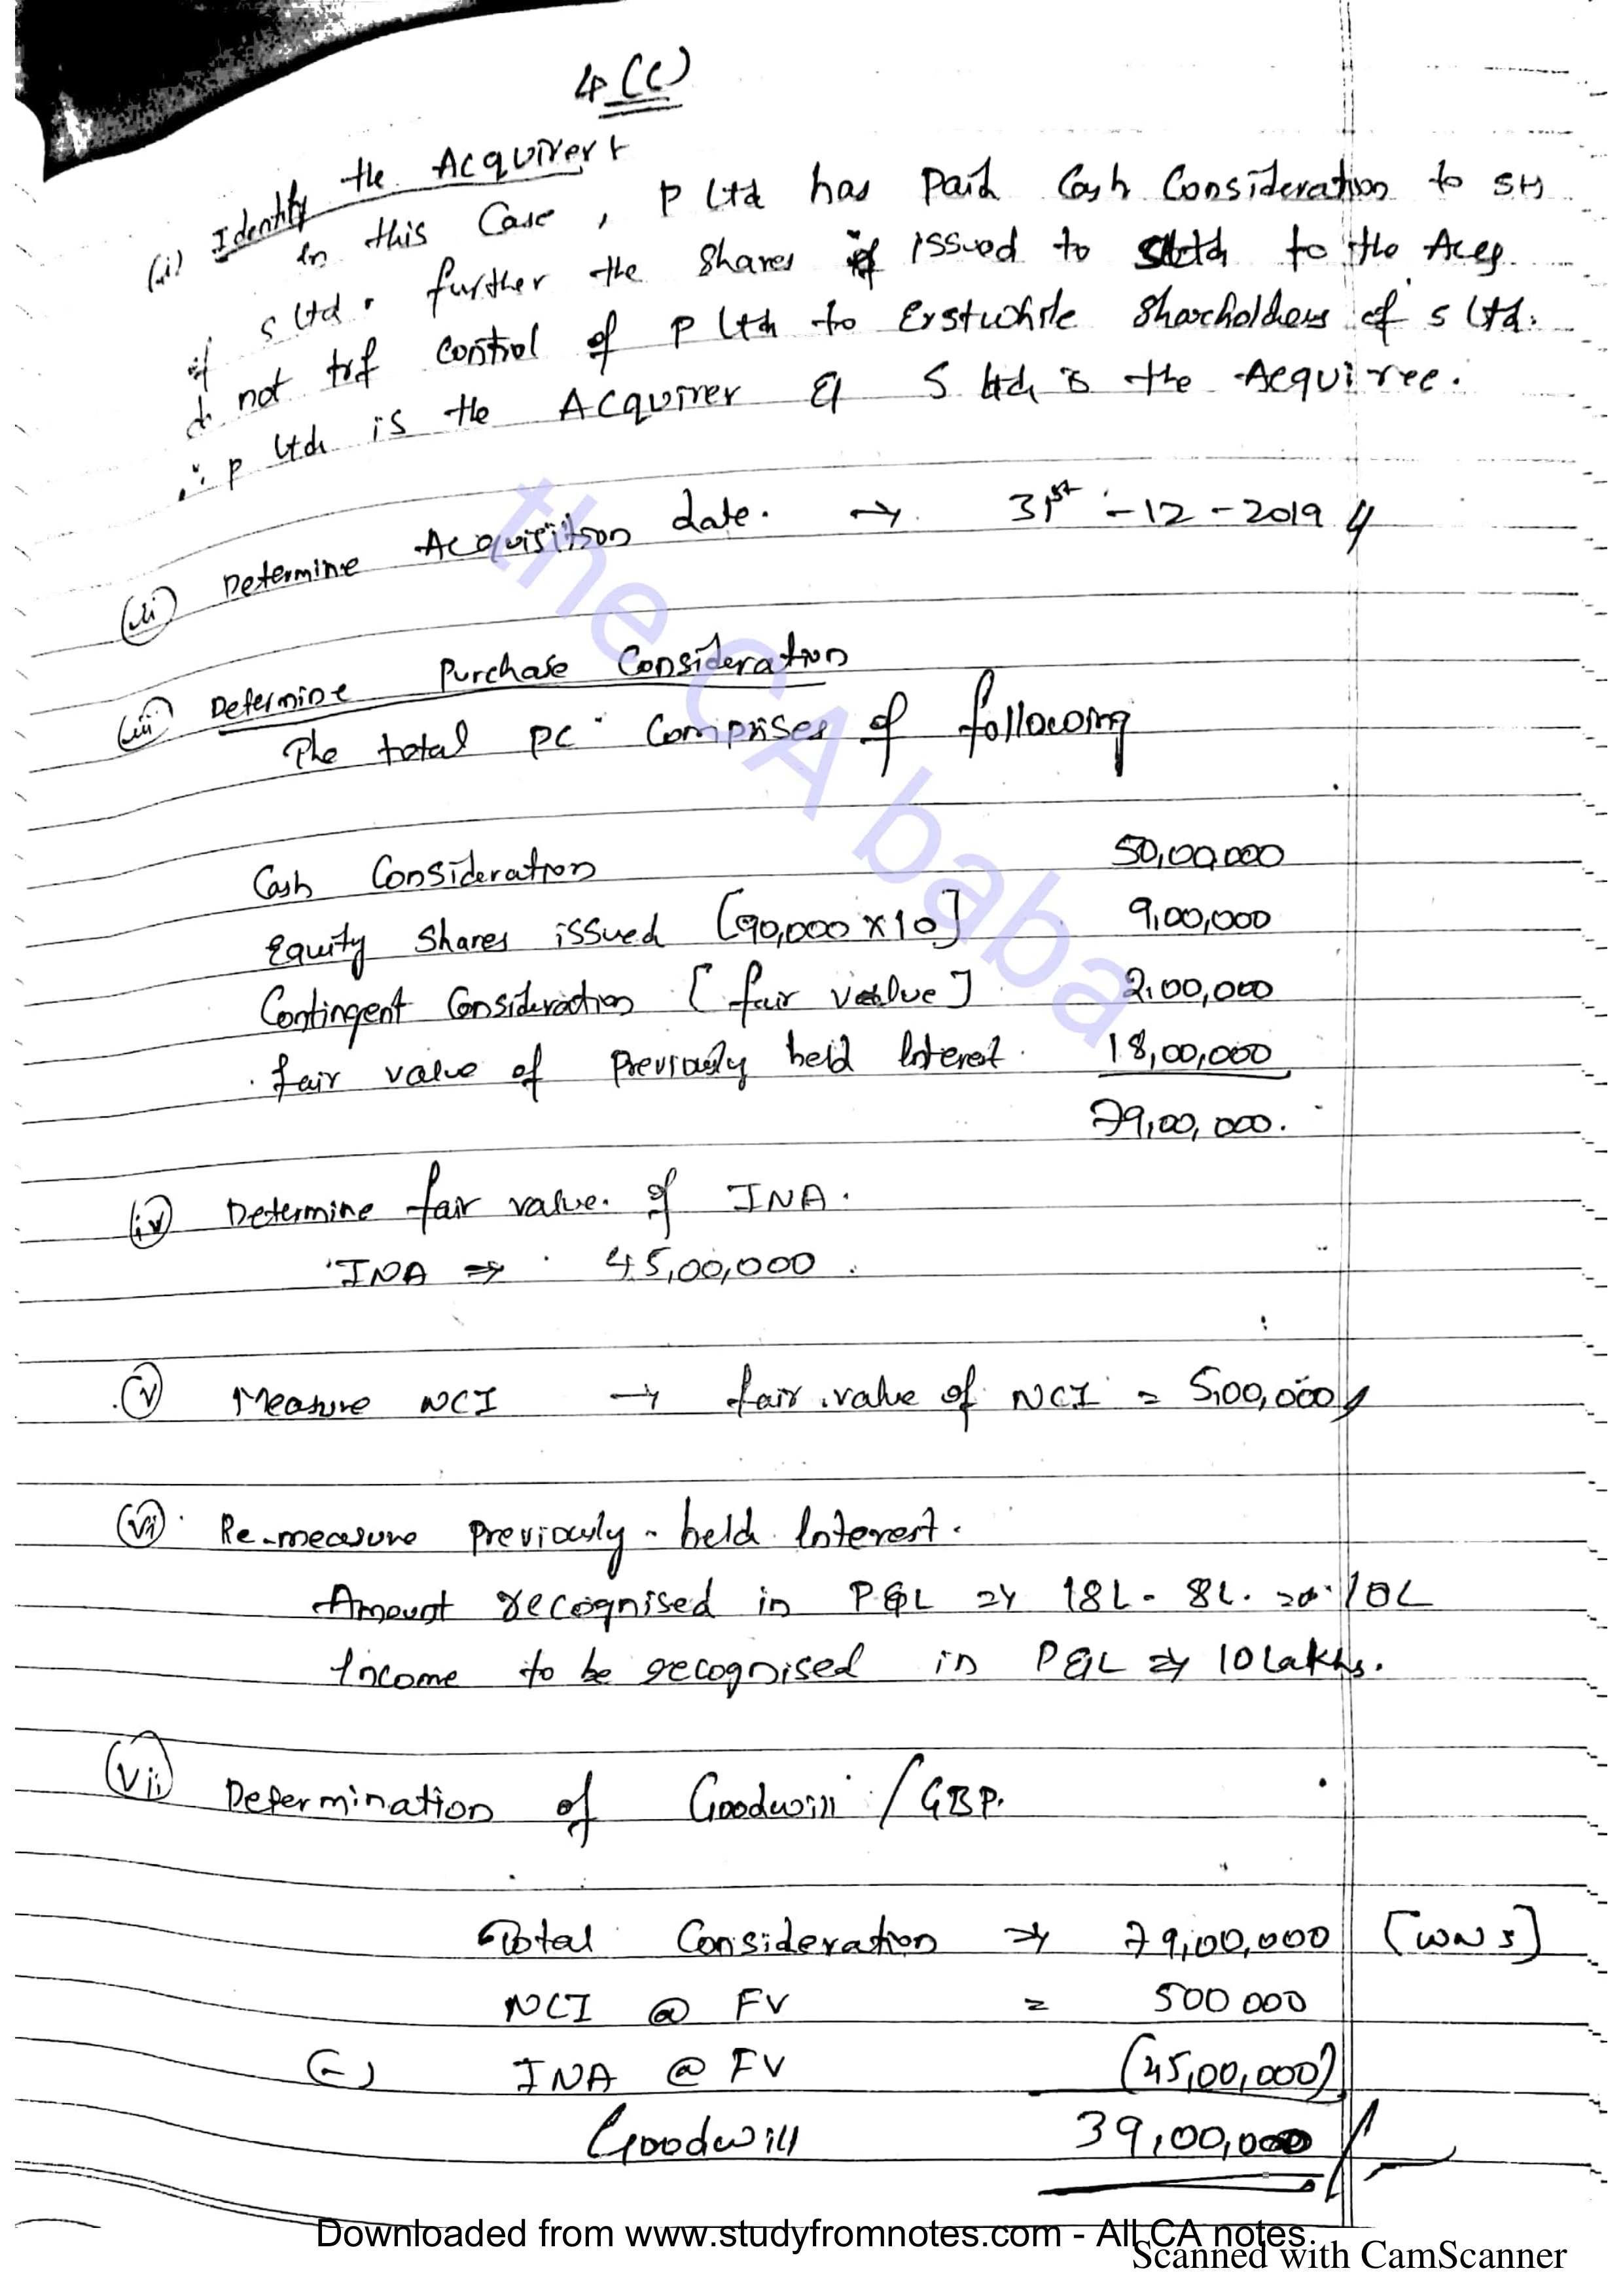 4 (C)
(i) Identify the Acquirer
In this Case, P Ltd has Paid Cash Consideration to SH
of S Ltd. further the Shares issued to to the Acq
do not trf Control of P Ltd to Erstwhile Shareholders of S Ltd.
∴ P Ltd is the Acquirer & S Ltd is the Acquiree.
(ii) Determine Acquisition date. → 31st -12-2019
(iii) Determine Purchase Consideration
The total PC Comprises of following
Cash Consideration 50,00,000
Equity Shares issued [90,000 x 10] 9,00,000
Contingent Consideration [fair value] 2,00,000
fair value of Previously held Interest 18,00,000
79,00,000.
(iv) Determine fair value of INA.
INA ⇒ 45,00,000
(v) Measure NCI → fair value of NCI = 5,00,000
(vi) Re-measure Previously-held Interest.
Amount recognised in P&L ⇒ 18L - 8L. ⇒ 10L
Income to be recognised in P&L ⇒ 10 Lakhs.
(vii) Determination of Goodwill / GBP.
Total Consideration ⇒ 79,00,000 [WN 3]
NCI @ FV = 500000
(-) INA @ FV (45,00,000)
Goodwill 39,00,000
the CA baba
Downloaded from www.studyfromnotes.com - All CA notes
Scanned with CamScanner